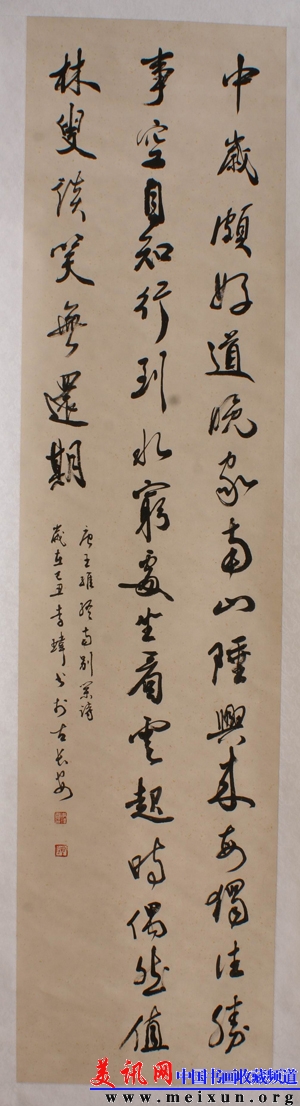 中歲頗好道晚家南山陲興來每獨往勝
事空自知行到水窮處坐看雲起時偶然值
林叟談笑無還期
唐王維終南別業詩
歲在己丑李瑋書於古長安
美讯网 中国书画收藏频道
www.meixun.org